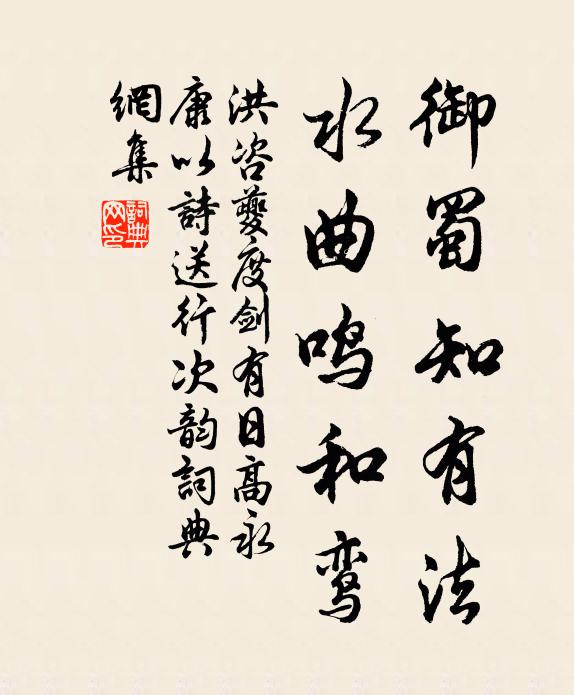 御蜀知有法
水曲鸣和鸾
洪咨夔度剑有日高永
康以詩送行次韵詞典
網集
詞典
网印